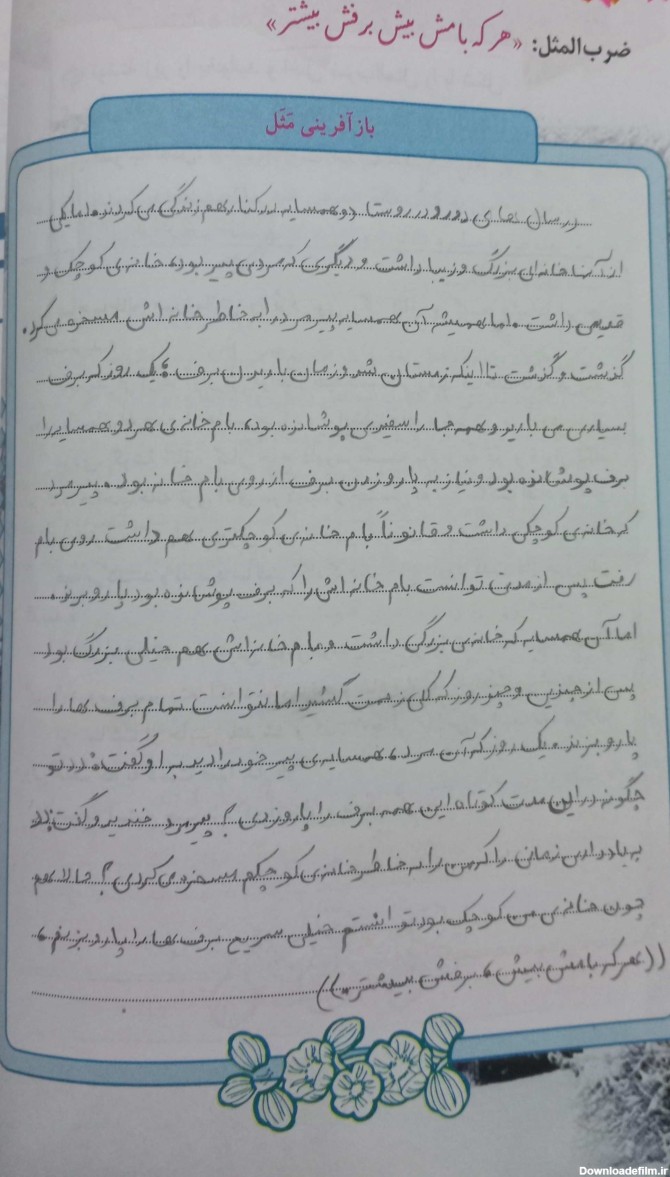 ضرب‌المثل: «هر که بامش بیش برفش بیشتر»
بازآفرینی مَثَل
در سال های دور و در روستا دو همسایه در کنار هم زندگی می کردند. اما یکی
از آن‌ها خانه‌ای بزرگ و زیبا داشت و دیگری که مردی پیر بود، خانه‌ی کوچک و
قدیمی داشت. اما همیشه آن همسایه پیرمرد را به خاطر خانه اش مسخره می کرد.
گذشت و گذشت تا اینکه زمستان شد و زمان باریدن برف؛ یک روز که برف
بسیاری می بارید و همه جا را سفیدی پوشانده بود، بام خانه‌ی هر دو همسایه را
برف پوشانده بود و نیاز به پارو زدن برف از روی بام خانه بود. پیرمرد
که خانه‌ی کوچکی داشت و قانوناً بام خانه‌ی کوچکتری هم داشت روی بام
رفت پس از مدتی توانست بام خانه اش را که برف پوشانده بود پارو بزند.
اما آن همسایه که خانه‌ی بزرگی داشت و بام خانه‌اش هم خیلی بزرگ بود
پس از چندین و چند روز که کلی زحمت کشید اما نتوانست تمام برف ها را
پارو بزند. یک روز که آن مرد، همسایه‌ی پیر خود را دید به او گفت: تو
چگونه در این مدت کوتاه این همه برف را پارو زدی؟ پیرمرد خندید و گفت:
به یاد داری زمانی را که من را به خاطر خانه‌ی کوچکم مسخره می کردی؟ حالا هم
چون خانه‌ی من کوچک بود توانستم خیلی سریع برف ها را پارو بزنم،
((هر که بامش بیش، برفش بیشتر.))
Downloadefilm.ir